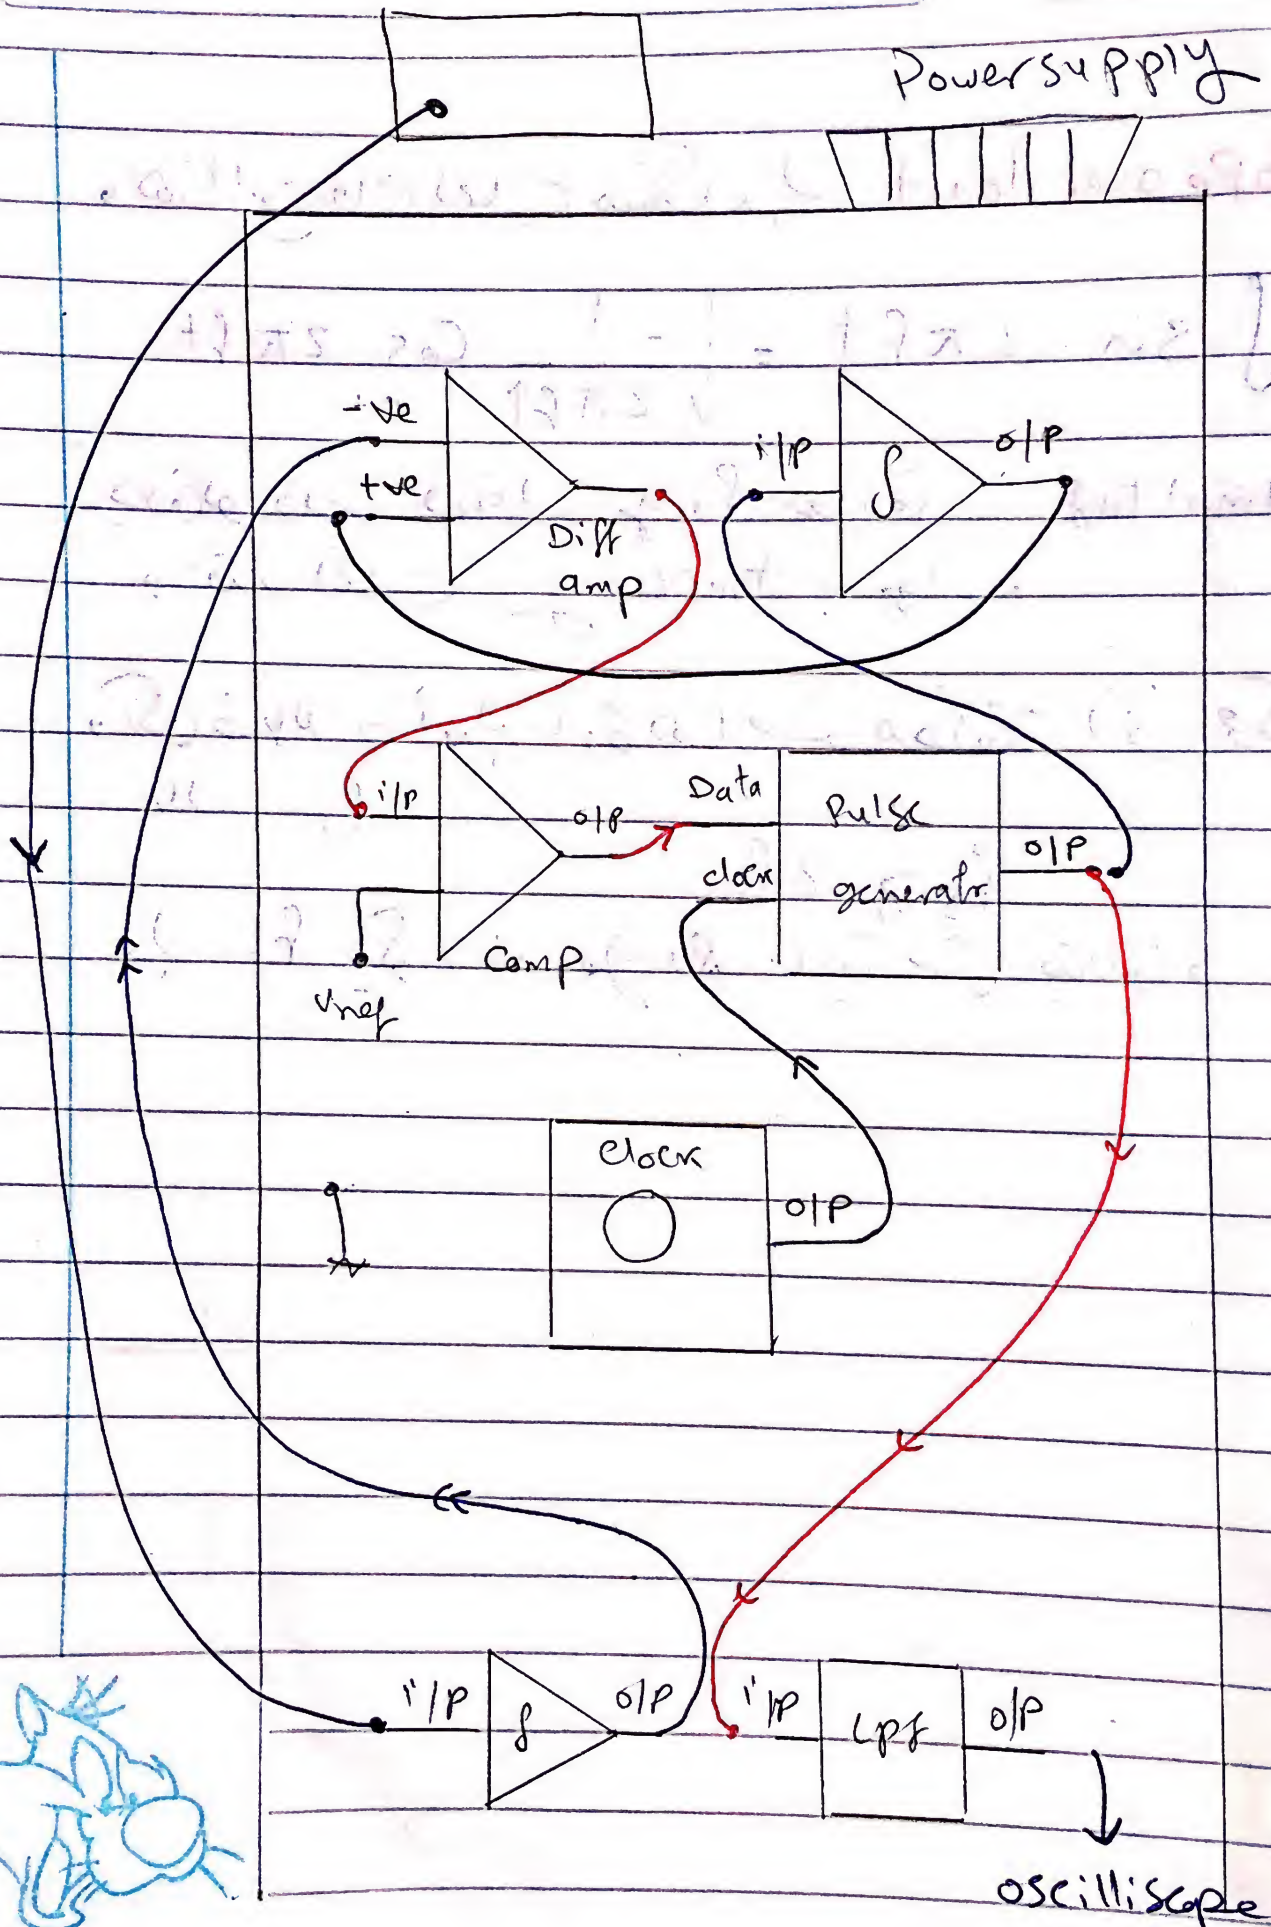 Powersupply
-ve
+ve
Diff
amp
i/p
∫
o/p
i/p
o/p
Data
clock
Pulse
generatr.
o/p
Comp.
Vref
Clock
o/p
i/p
∫
o/p
i/p
Lpf
o/p
oscilliscope